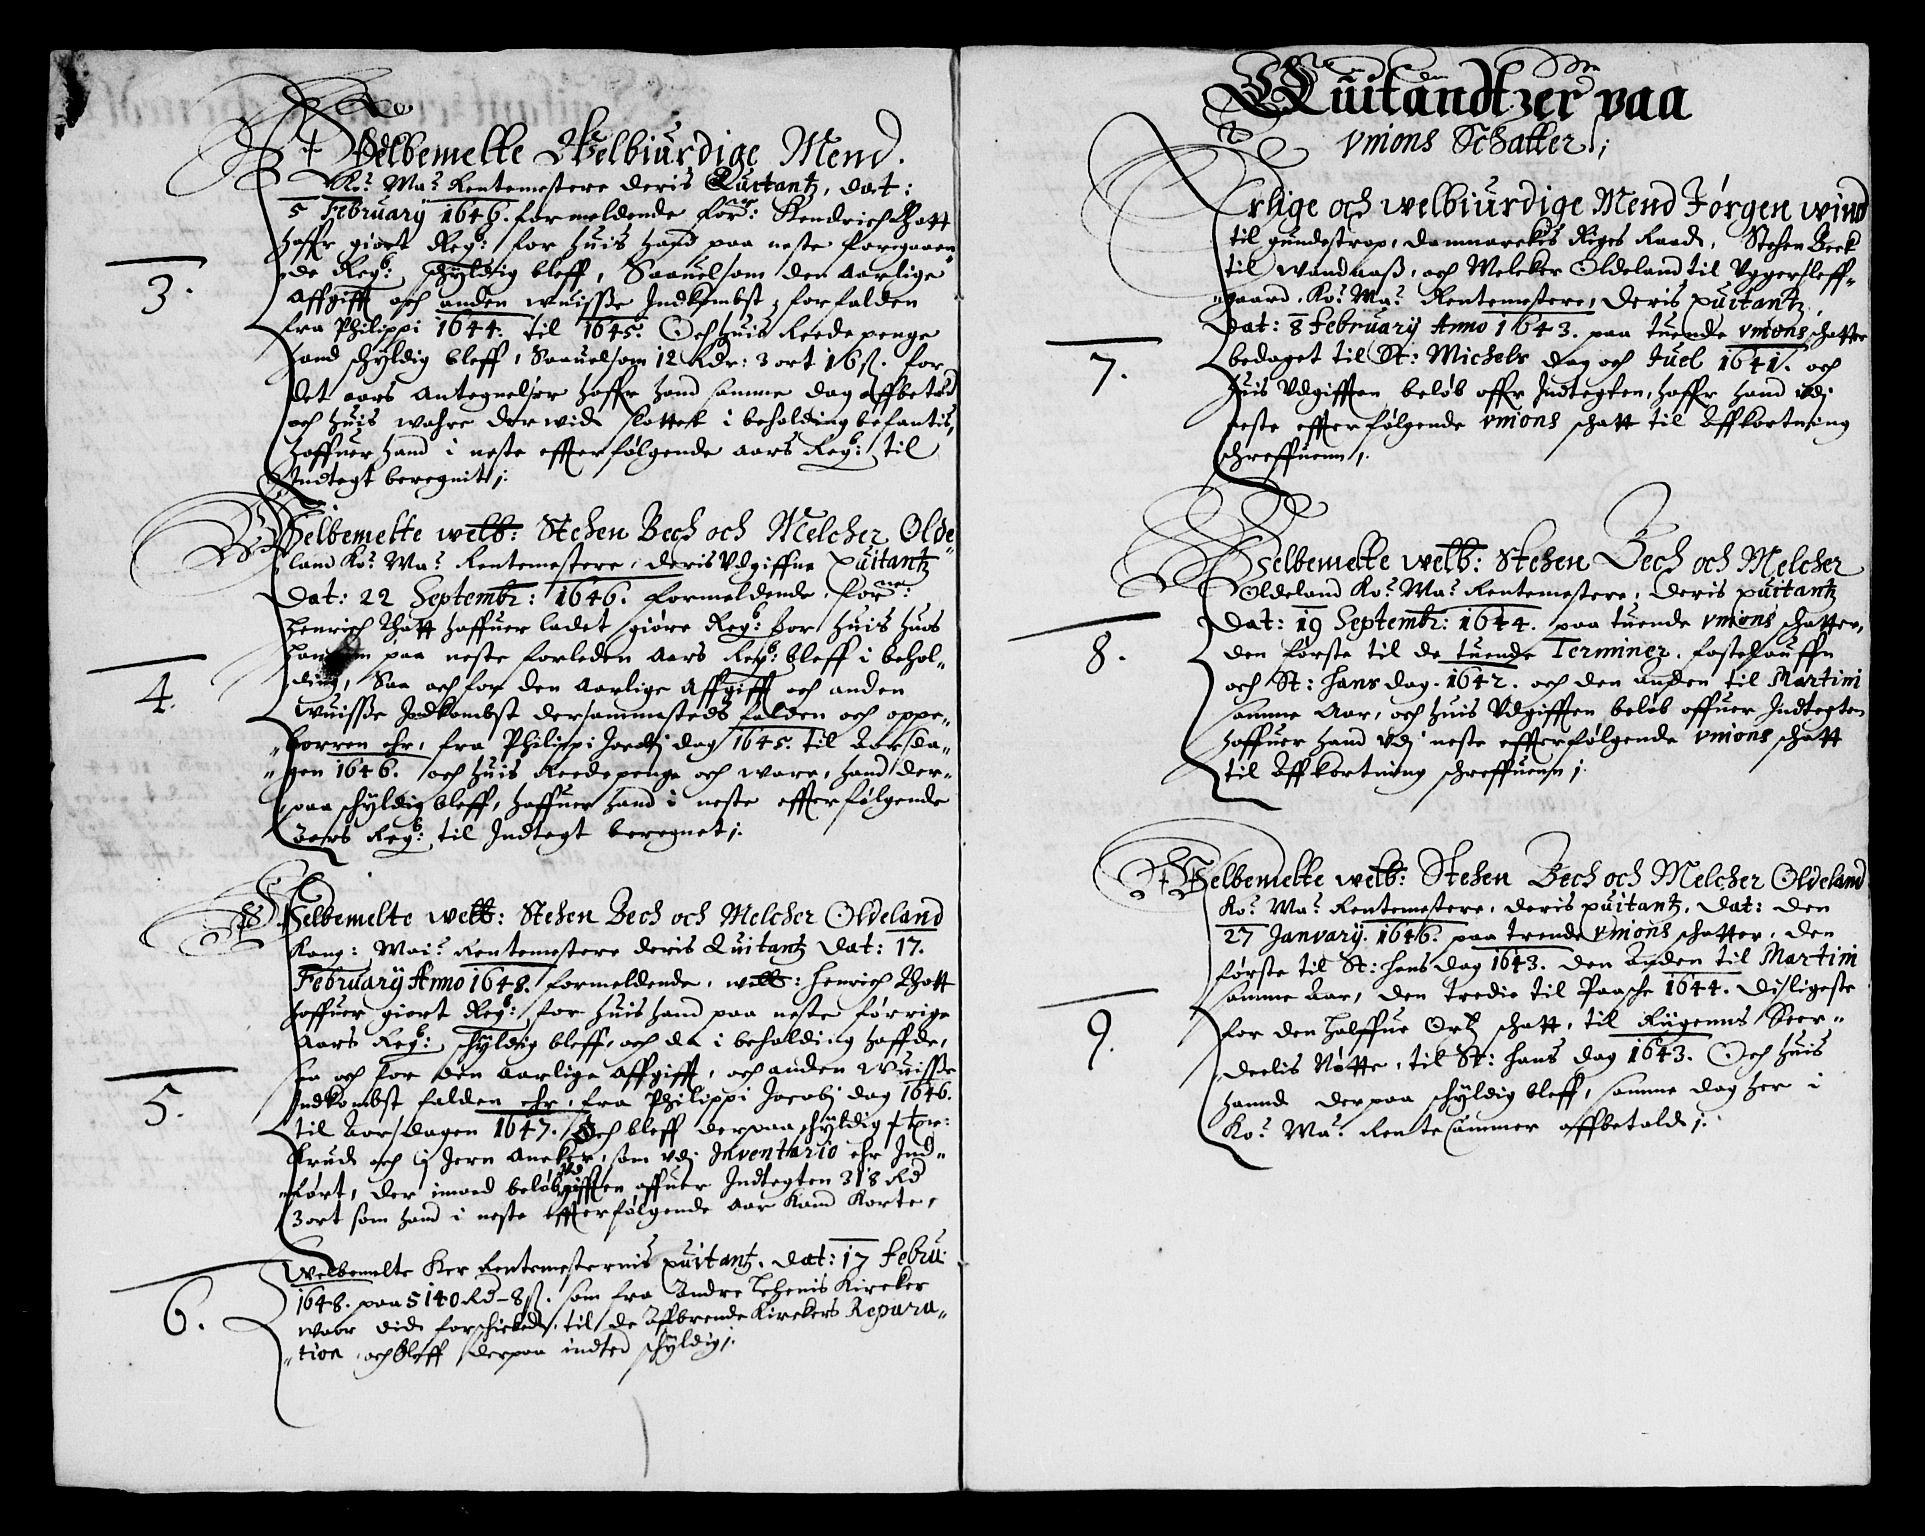 Velbemelte Welbiurdige Mend.
Ko: Ma: Rentemestere deris Quitantz, dat:
5 Februarij 1646. formeldende for: Hendrich Thott
haffr giort Regb: for huis hand paa neste foregaaen
3. de Regb: schyldig bleff, Saauelsom den Aarlige
Affgifft och anden wuisse Indkombst, forfalden
fra Philippi 1644. til 1645. Och huis Reede penge
hand schyldig bleff, Saauelsom 12 Rdr: 3 ort 16 ß. for
det aars Antegnelser haffr hand samme dag affbetald
och huis wahre der wid slottet i beholding befantis,
haffuer hand i neste effterfølgende aars Regb: til
Indtegt beregnit;
Velbemelte welb: Stehen Bech och Melcher Olde
land Ko: Ma: Rentemestere, deris Udgiffne quitantz
Dat: 22 Septembr: 1646. formeldende, for:
Henrich Thott haffuer ladet giøre Regb: for huis huos
paa neste forleden Aars Regb: bleff i behol-
4. ding, Saa och for den Aarlige Affgifft och anden
Wuisse Indkombst dersammesteds falden och oppe-
borren ehr, fra Philippi Jacobj dag 1645. til Aarsda-
gen 1646. och huis Reedepenge och ware, hand der-
paa schyldig bleff, haffuer hand i neste effterfølgende
Aars Regb: til Indtegt beregnet;
Velbemelte welb: Stehen Bech och Melcher Oldeland
Kong: Mai: Rentemestere deris Quitantz Dat: 17.
Februarij Anno 1648. formeldende, welb: Henrich Thott
haffuer giort Regb: for huis hand paa neste førrige
Aars Regb: schyldig bleff, och da i beholding haffde,
saa och for den Aarlige Affgifft, och anden Wuisse
5. Indkombst falden ehr, fra Philippi Jacobj dag 1646.
til Aarsdagen 1647. Och bleff derpaa schyldig
Krud och Jern Ancker, som udj Inventario ehr Ind-
ført, der imod beløb udgifften offuer Indtegten 318 Rd
3 ort som hand i neste effterfølgende Aar kand Korte,
Welbemelte Her Rentemesternis quitantz, dat: 17 Febru:
1648. paa 5140 Rd - 8 ß. som fra Andre Lehenis Kircker
6. waar did forschicked, til de Affbrende Kirckers Repara-
tion, och bleff derpaa indted schyldig;
Quitandtzer paa
Unions Schatter;
Erlige och welbiurdige Mend Jørgen wind
til gundestrop, Danmarckis Riges Raad, Stehen Beck
til Wandaaß, och Melcker Oldeland til Uggersleff-
gaard, Ko: Ma: Rentemestere, deris quitantz,
Dat: 8 Februarij Anno 1643. paa tuende Unions schatter
7. bedaget til St: Michels dag och Juel 1641. och
huis Udgifften beløb offr Indtegten, haffr hand udj
neste effterfølgende Unions schatt til Affkortning
schreffuenn;
Velbemelte welb: Stehen Bech och Melcher
Oldeland Ko: Ma: Rentemestere, deris quitantz
Dat: 19 Septembr: 1644. paa tuende Unions schatter,
8. den første til de tuende Terminer, fastelauffn
och St: Hans dag. 1642. och den anden til Martini
samme Aar, och huis Udgifften beløb offuer Indtegten
haffuer hand Udj neste effterfølgende Unions schatt
til Affkortning schreffuenn;
Velbemelte welb: Stehen Bech och Melcher Oldeland
Ko: Ma: Rentemestere, deris quitantz, Dat: den
27 Januarij. 1646. paa trende Unions schatter, den
første til St: Hans dag 1643. den Anden til Martini
samme Aar, den tredie til Paasche 1644. Disligeste
9. for den halffue Ortz schatt, til Rügenns
deelis Nøtte, til St: Hans dag 1643. Och huis
hannd derpaa schyldig bleff, samme dag her i
Ko: Ma: Rente Cammer affbetald;